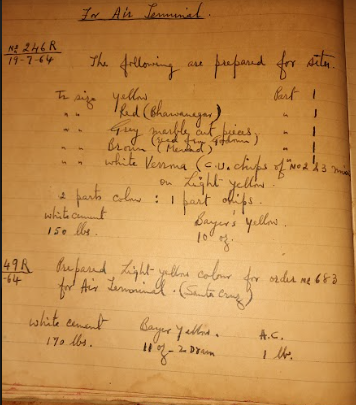 For Air Terminal.
No 246R
19-7-64
The following are prepared for site.
Tr size yellow Part 1
" " Red (Bhavanagar) " 1
" " Grey marble cut pieces " 1
" " Brown " 1
" " white Verona (C.U. chips of No 2 & 3
on Light yellow.
2 parts colour : 1 part chips.
white cement Bayer's Yellow.
150 lbs. 10 oz.
49R Prepared Light yellow colour for order No 683
-64 for Air Terminal. (Santa Cruz)
white cement Bayer Yellow. A.C.
170 lbs. 11 oz - 2 Dram 1 lb.